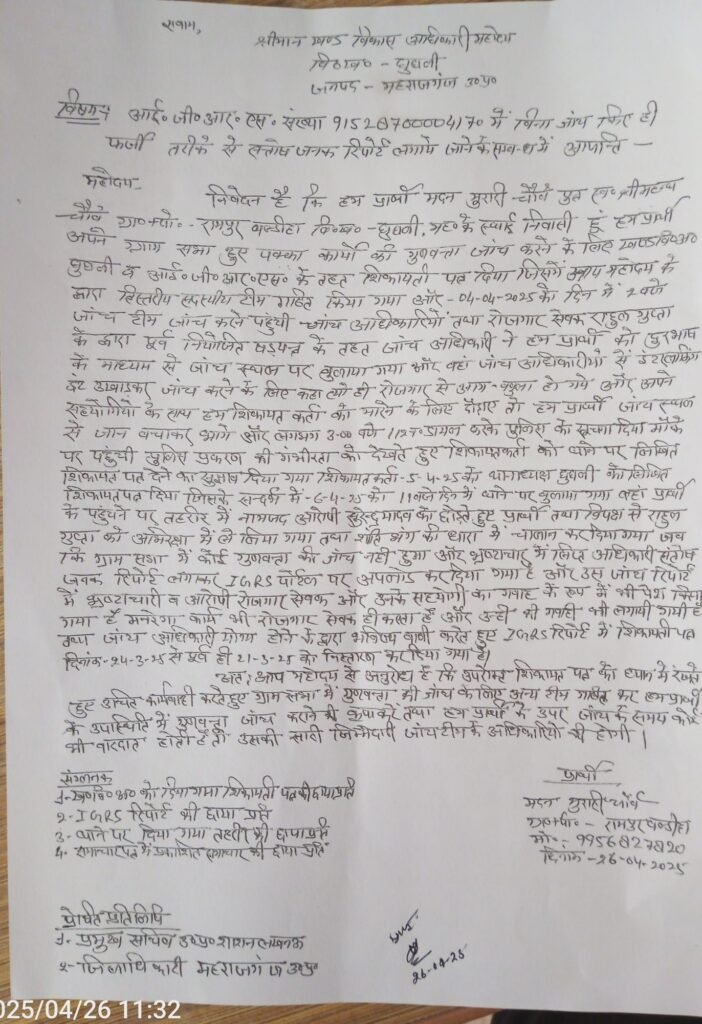 सेवाम,
श्रीमान खण्ड विकास अधिकारी महोदय
वि०ख० - घुघली
जनपद - महराजगंज उ०प्र०
विषय:- आई० जी० आर० एस० संख्या 915287000004170 में बिना जांच किए ही
फर्जी तरीके से सन्तोष जनक रिपोर्ट लगाये जाने के सम्बन्ध में आपत्ति -
महोदय-
निवेदन है कि हम प्रार्थी मदन मुरारी चौबे पुत्र स्व० श्री
चौबे ग्रा०+पो० - रामपुर बल्डीहा वि०ख० - घुघली, मह० के स्थाई निवासी हूं हम प्रार्थी
अपने ग्राम सभा हुए पक्का कार्यो की गुणवत्ता जांच कराने के लिए ख०वि०अ०
घुघली व आई० जी० आर० एस० के तहत शिकायती पत्र दिया जिसमें महोदय के
द्वारा त्रिस्तरीय सदस्यीय टीम गठित किया गया और -04-04-2025 को दिन में 2 बजे
जांच टीम जांच करने पहुंची जांच अधिकारियों तथा रोजगार सेवक राहुल गुप्ता
के द्वारा पूर्व नियोजित षडयन्त्र के तहत जांच अधिकारी ने हम प्रार्थी को दुरभाष
के माध्यम से जांच स्थल पर बुलाया गया और वहां जांच अधिकारीयों से इंटरलाकिंग
ईंट उखाडकर जांच करने के लिए कहा त्यो ही रोजगार से आग-बबुला हो गये और अपने
सहयोगियों के साथ हम शिकायत कर्ता को मारने के लिए दौड़ाए तो हम प्रार्थी जांच स्थल
से जान बचाकर भागे और लगभग 3-00 बजे 112 न० डायल करके पुलिस को सूचना दिया मौके
पर पहुंची पुलिस प्रकरण की गंभीरता को देखते हुए शिकायतकर्ता को थाने पर लिखित
शिकायत पत्र देने का सुझाव दिया गया शिकायतकर्ता -5-4-25 को थानाध्यक्ष घुघली को लिखित
शिकायत पत्र दिया जिसके सन्दर्भ में -6-4-25 को 11 बजे दिन में थाने पर बुलाया गया वहां प्रार्थी
के पहुंचने पर तहरीर में नामजद आरोपी सुरेन्द्र यादव को छोड़ते हुए प्रार्थी तथा विपक्ष से राहुल
गुप्ता को अभिरक्षा में ले लिया गया तथा शांति भंग की धारा में चालान कर दिया गया जब
कि ग्राम सभा में कोई गुणवत्ता की जांच नही हुआ और भ्रष्टाचार में लिप्त अधिकारी संतोष
जनक रिपोर्ट लगाकर IGRS पोर्टल पर अपलोड कर दिया गया है और उस जांच रिपोर्ट
में भ्रष्टाचारी व आरोपी रोजगार सेवक और उनके सहयोगी का गवाह के रूप में भी पेश किया
गया है मनरेगा कार्य भी रोजगार सेवक ही करता है और उन्ही की गवाही भी लगायी गयी है
तथा जांच अधिकारी द्वारा भविष्य वाणी करते हुए IGRS रिपोर्ट में शिकायती पत्र
दिनांक -24-3-25 से पूर्व ही 21-3-25 को निस्तारण कर दिया गया है।
अतः आप महोदय से अनुरोध है कि उपरोक्त शिकायत पत्र को ध्यान में रखते
हुए उचित कार्यवाही करते हुए ग्राम सभा में गुणवत्ता की जांच के लिए अन्य टीम गठित कर हम प्रार्थी
के उपस्थिति में गुणवत्ता जांच कराने की कृपा करें तथा हम प्रार्थी के उपर जांच के समय कोई
भी वारदात होती है तो उसकी सारी जिम्मेदारी जांच टीम के अधिकारियो की होगी।
संलग्नक
1- ख०वि०अ० को दिया गया शिकायती पत्र की छाया प्रति
2- IGRS रिपोर्ट की छाया प्रति
3- थाने पर दिया गया तहरीर की छाया प्रति
4- समाचार पत्र में प्रकाशित समाचार की छाया प्रति
प्रार्थी
मदन मुरारी चौबे
ग्रा०+पो० - रामपुर बल्डीहा
मो०:- 9956827820
दिनांक -26-04-2025
प्रेषित प्रतिलिपि
1- प्रमुख सचिव उ०प्र० शासन लखनऊ
2- जिलाधिकारी महराजगंज उ०प्र०
26-04-25
025/04/26 11:32